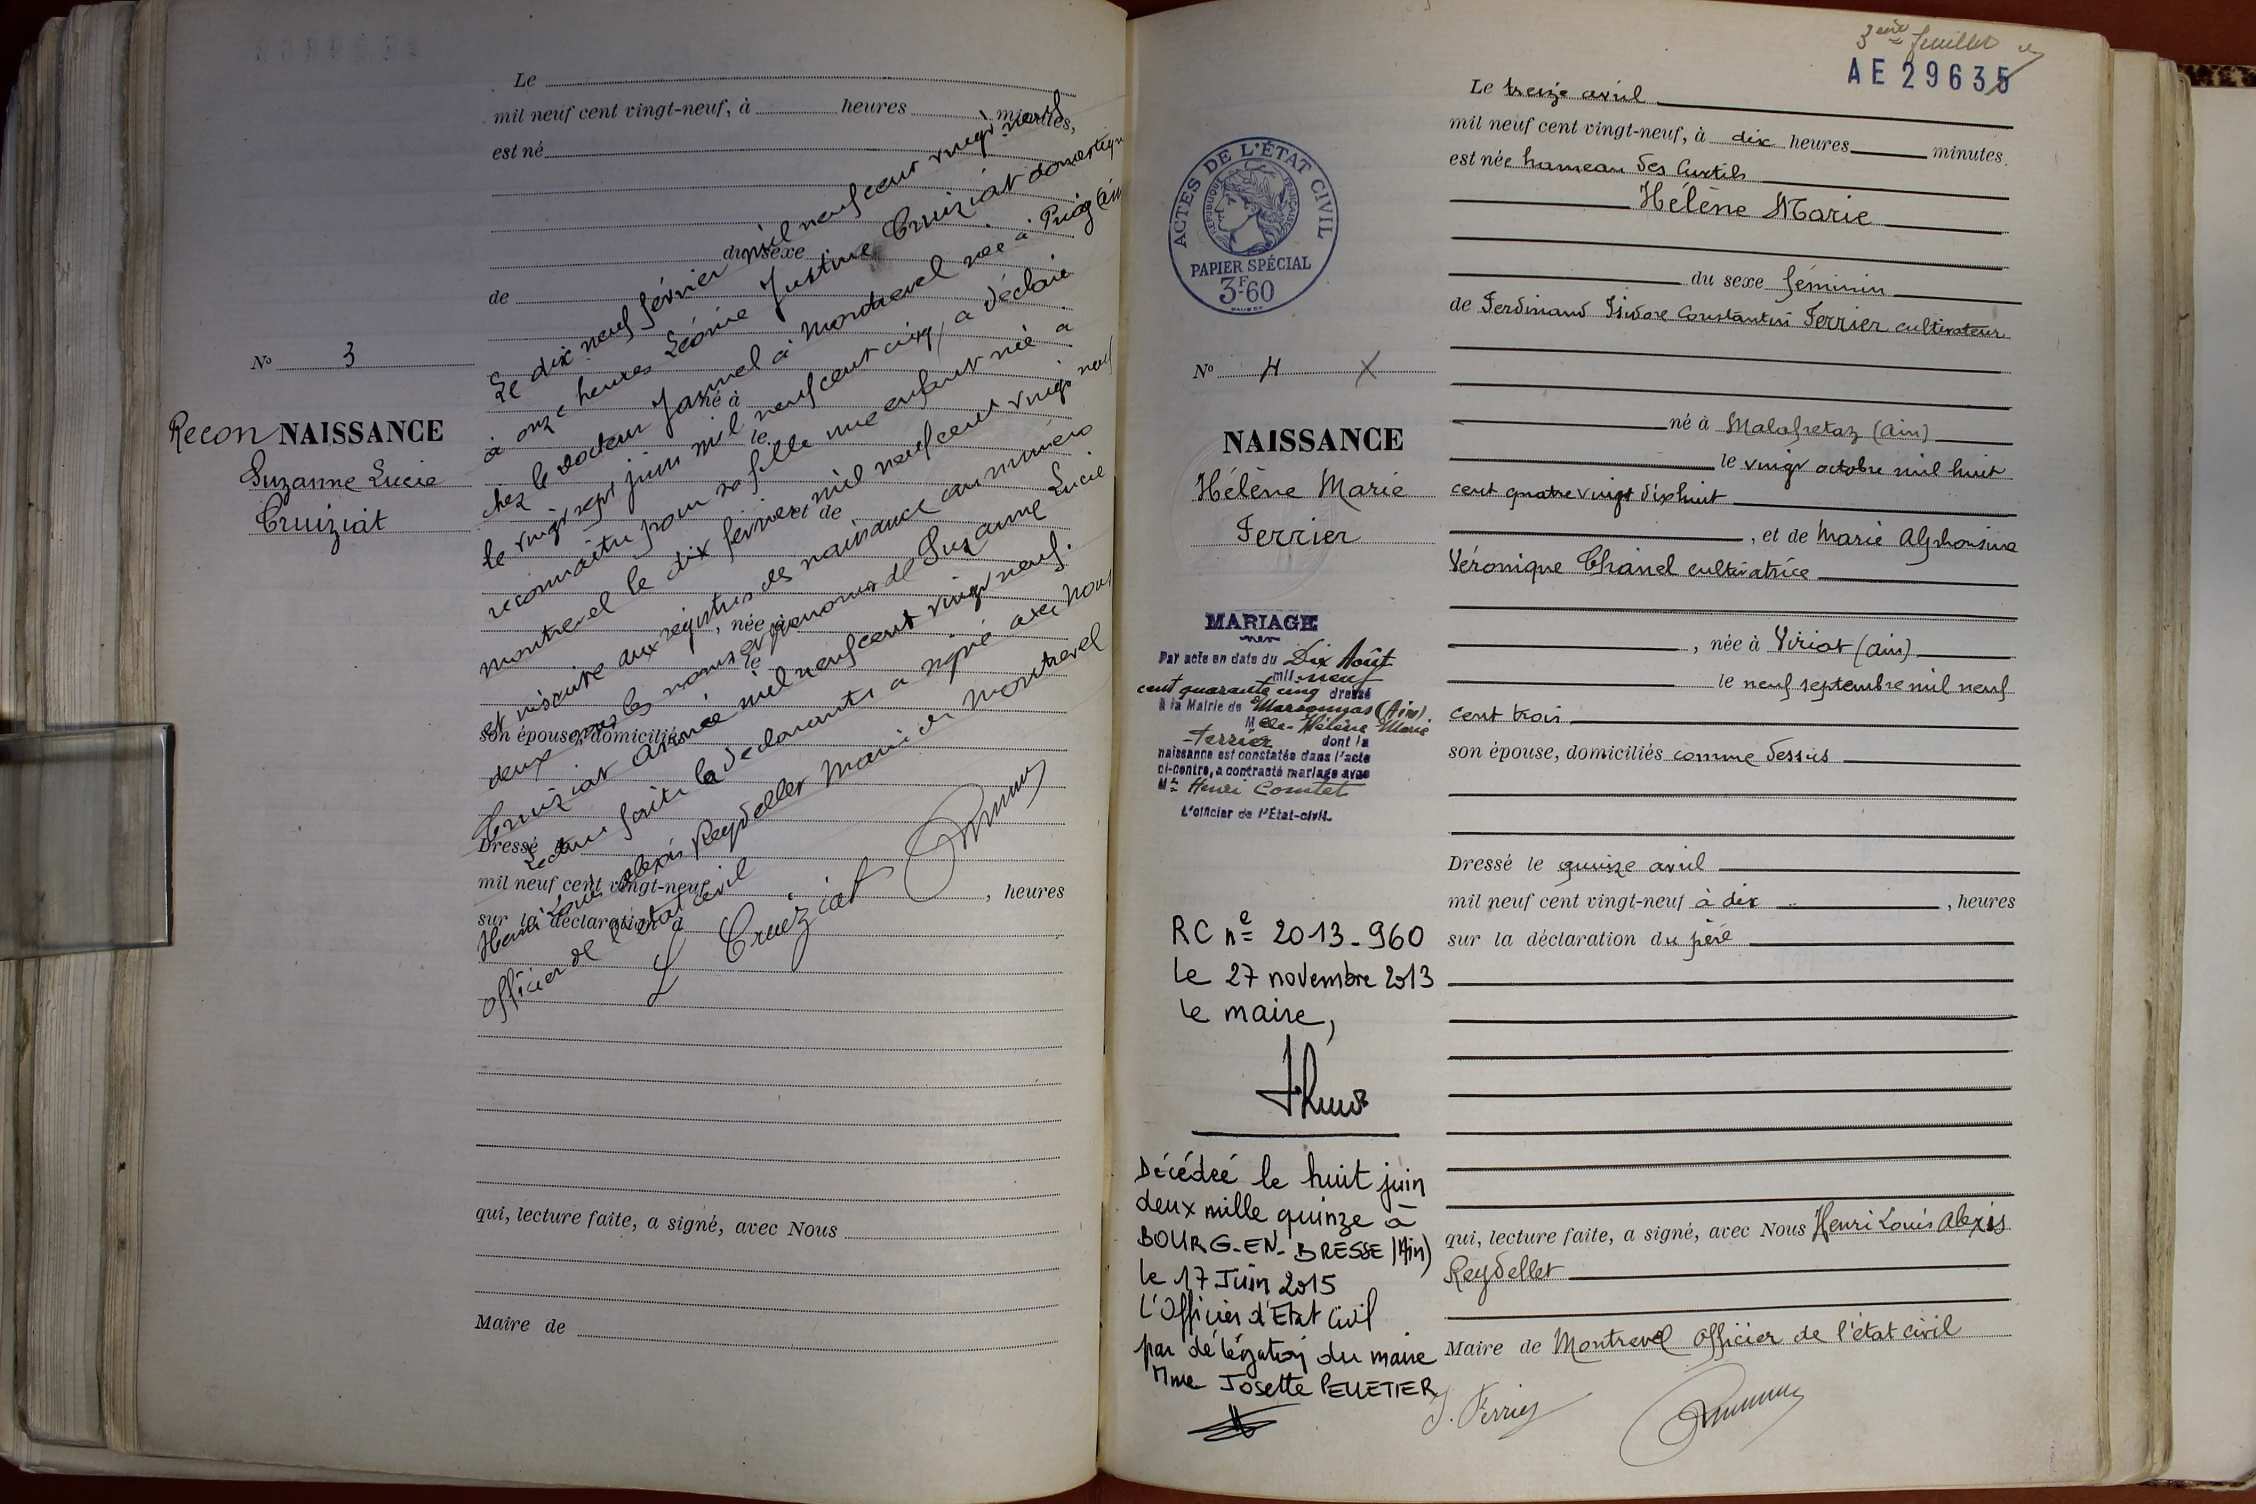 Le
mil neuf cent vingt-neuf, à heures minutes,
est né
du sexe
de
né à
le
et de
, née à
le
son épouse, domiciliés
Dressé le
mil neuf cent vingt-neuf , heures
sur la déclaration d
qui, lecture faite, a signé, avec Nous
Maire de
No 3
Recon NAISSANCE
Suzanne Lucie
Cruiziat
Le dix neuf février mil neuf cent vingt neuf
à onze heures Léonie Justine Cruiziat domestique
chez le docteur Jannel à Montrevel née à Priay (Ain
le vingt sept juin mil neuf cent cinq, a déclaré
reconnaître pour sa fille une enfant née à
Montrevel le dix février mil neuf cent vingt neuf
et inscrite aux registres de naissance au numéro
deux sous les noms et prénoms de Suzanne Lucie
Cruiziat année mil neuf cent vingt neuf.
Lecture faite la déclarante a signé avec Nous
Henri Louis Alexis Reydellet Maire de Montrevel
officier de l'état civil
L Cruiziat
3eme feuillet
AE 29635
ACTES DE L'ÉTAT CIVIL
RÉPUBLIQUE FRANÇAISE
PAPIER SPÉCIAL
3F.60
Le treize avril
mil neuf cent vingt-neuf, à dix heures minutes.
est née hameau des Curtils
Hélène Marie
du sexe féminin
de Ferdinand Isidore Constantin Ferrier cultivateur
né à Malafretaz (Ain)
le vingt octobre mil huit
cent quatre vingt dix huit
, et de Marie Alphonsine
Véronique Chanel cultivatrice
, née à Viriat (Ain)
le neuf septembre mil neuf
cent trois
son épouse, domiciliés comme dessus
Dressé le quinze avril
mil neuf cent vingt-neuf à dix , heures
sur la déclaration du père
qui, lecture faite, a signé, avec Nous Henri Louis Alexis
Reydellet
Maire de Montrevel officier de l'état civil
J. Ferrier
No 4 X
NAISSANCE
Hélène Marie
Ferrier
MARIAGE
Par acte en date du Dix Août
mil neuf
cent quarante cinq dressé
à la Mairie de Marsonnas (Ain)
Melle Hélène Marie
Ferrier dont la
naissance est constatée dans l'acte
ci-contre, a contracté mariage avec
Mr Henri Comtet
L'officier de l'État-civil.
RC n° 2013-960
le 27 novembre 2013
le maire,
Décédée le huit juin
deux mille quinze à
BOURG-EN-BRESSE (Ain)
le 17 Juin 2015
L'Officier d'Etat Civil
par délégation du maire
Mme Josette PELLETIER